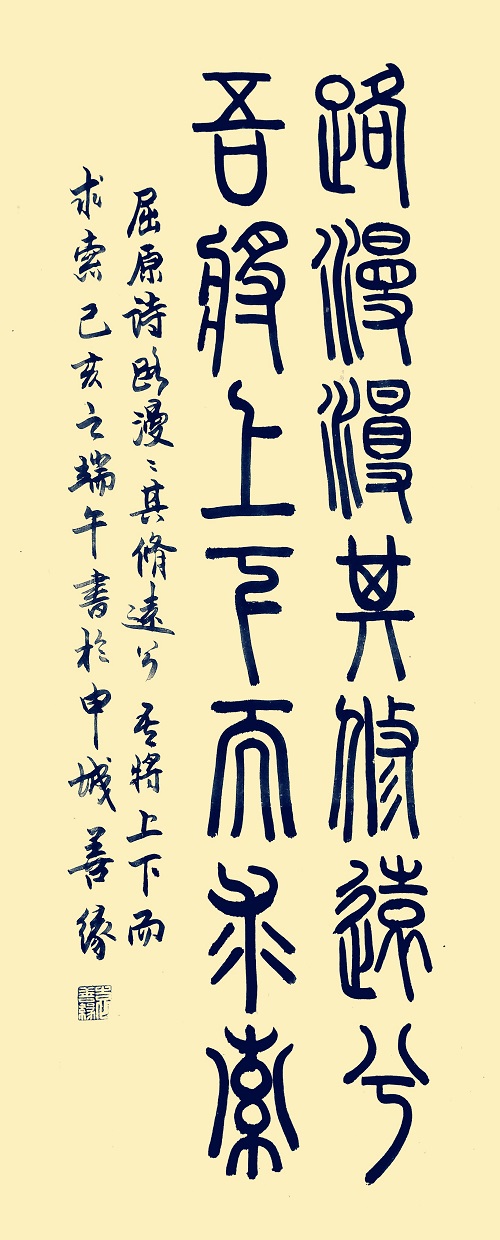 路漫漫其修遠兮
吾將上下而求索
屈原诗路漫〻其脩遠兮吾将上下而
求索己亥之端午書於申城善缘